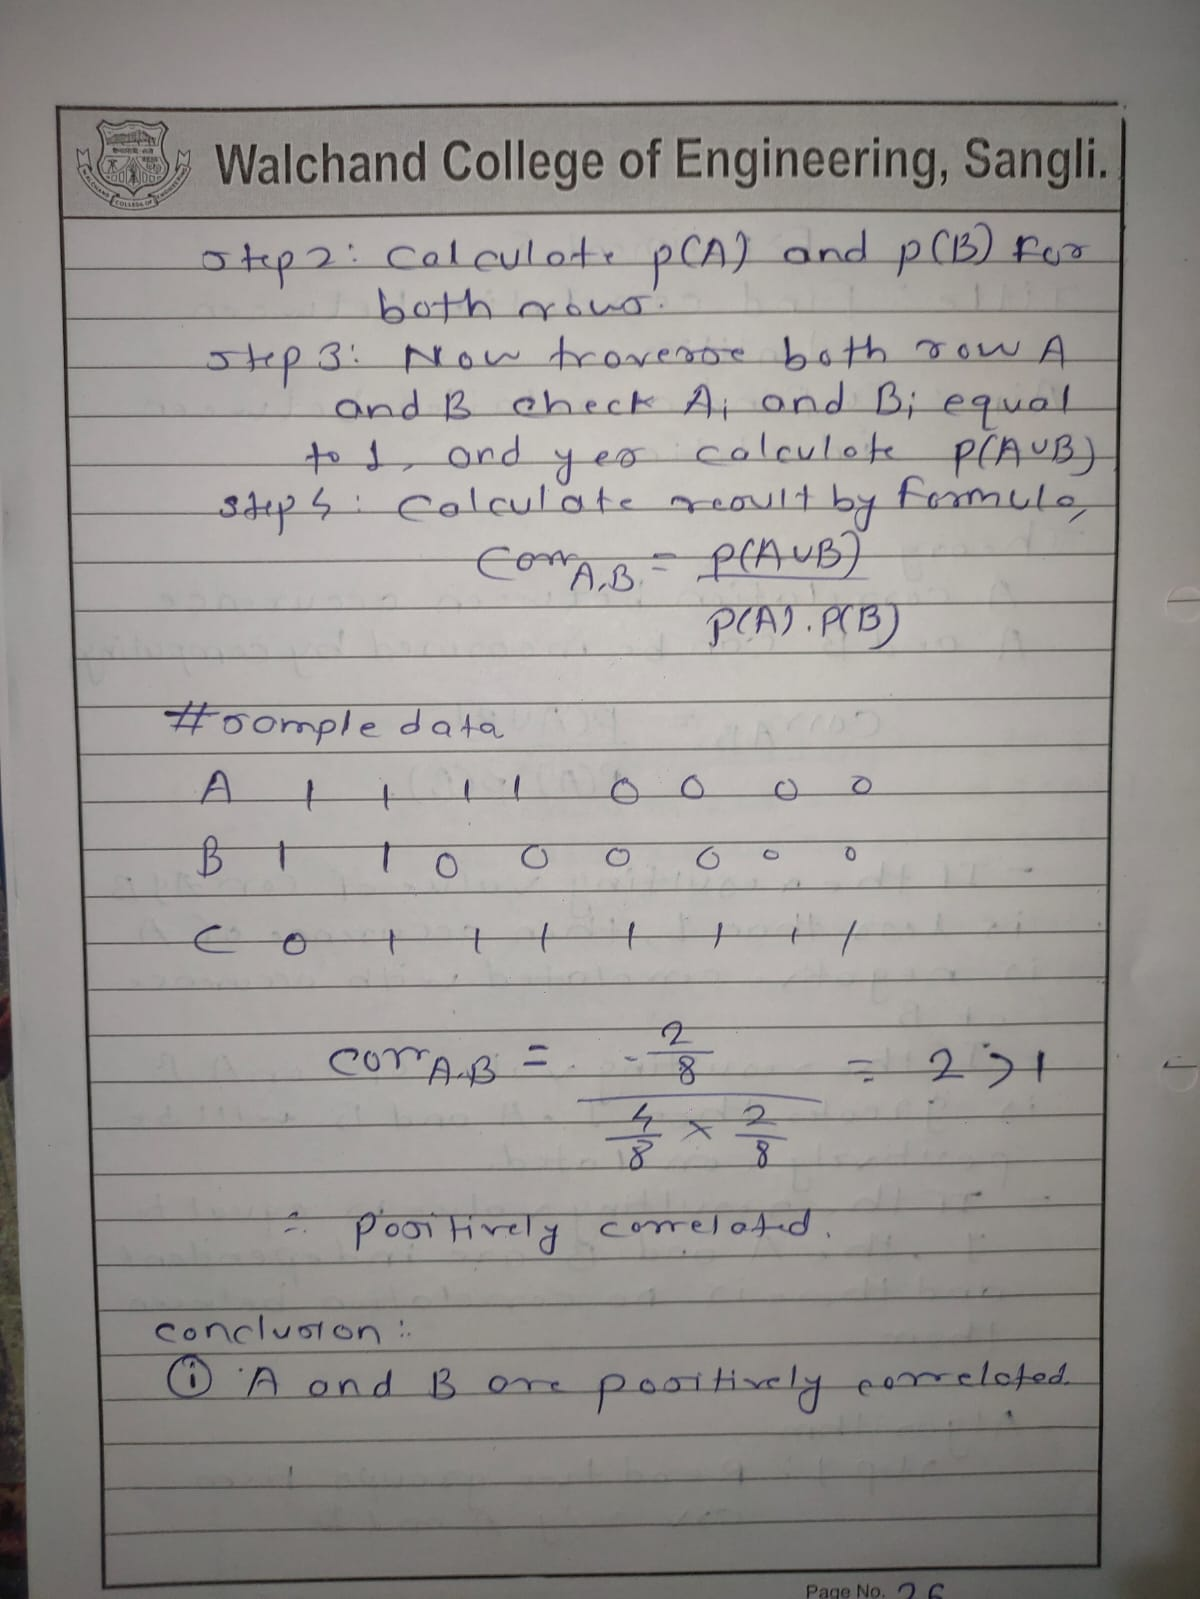 Walchand College of Engineering, Sangli.
step 2: Calculate p(A) and p(B) for
both rows.
step 3: Now traverse both row A
and B check Ai and Bi equal
to 1, and yes calculate P(A∪B)
step 4: Calculate result by formula,
Corr A,B = P(A∪B)
P(A).P(B)
# sample data
A 1 1 1 1 0 0 0 0
B 1 1 0 0 0 0 0 0
C 0 1 1 1 1 1 1 1
corr A,B = 2/8 = 2 > 1
4/8 × 2/8
∴ Positively correlated.
conclusion:
① A and B are positively correlated.
Page No. 26